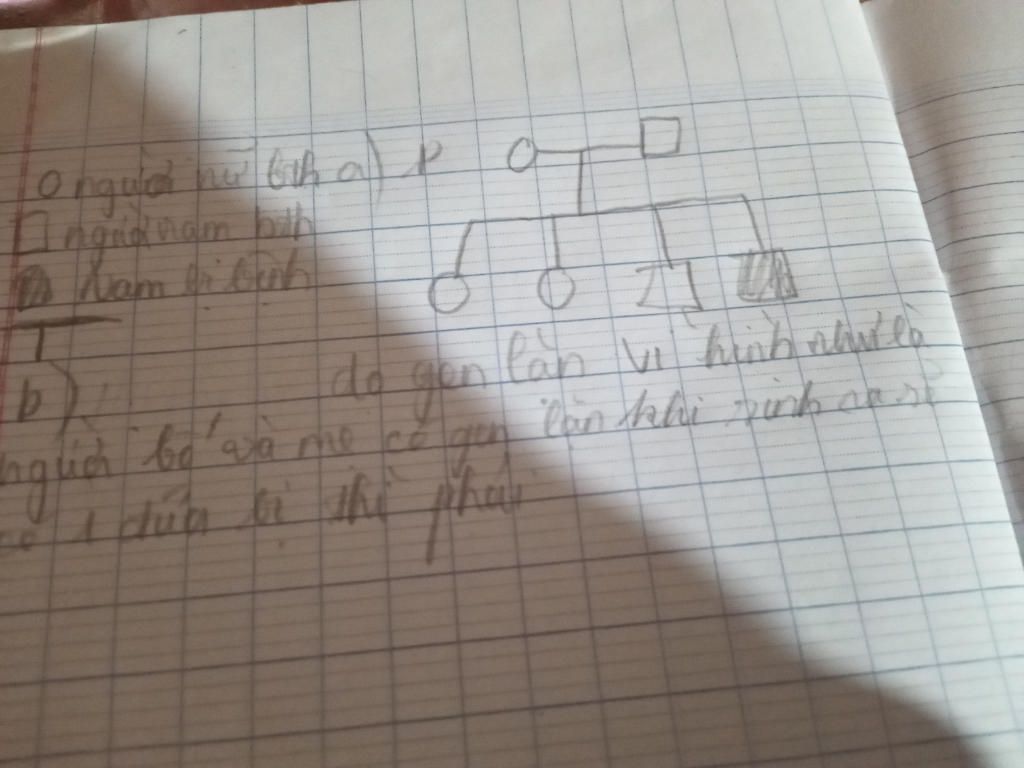 người nữ bth a) P
người nam bth
Nam bị bệnh
b) do gen lặn vì hình như là
người bố và mẹ có gen lặn khi sinh ra sẽ
có 1 đứa bị thì phải